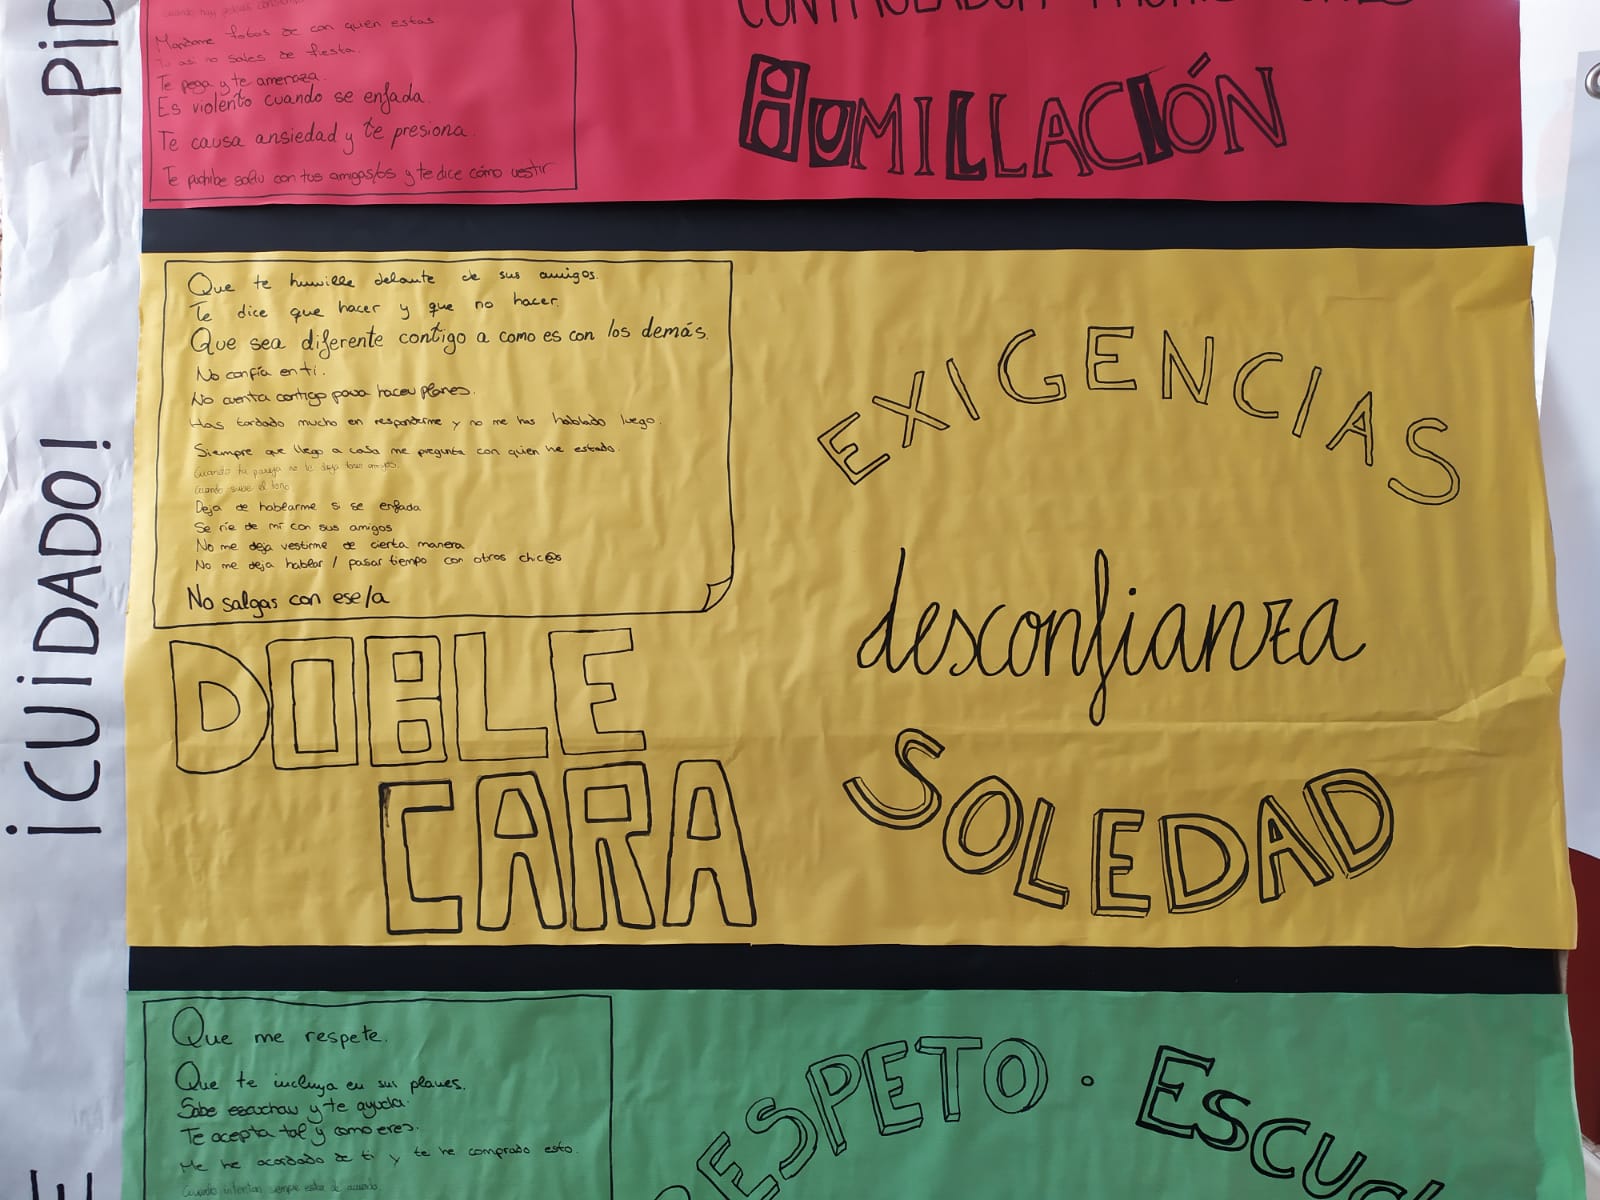 PiD
¡CUiDADO!
E
Mandame fotos de con quien estas
Tu así no sales de fiesta.
Te pega y te amenaza.
Es violento cuando se enfada.
Te causa ansiedad y te presiona.
Te prohibe salir con tus amigas/os y te dice cómo vestir
CONTROLADOR
HUMILLACIÓN
Que te humille delante de sus amigos.
Te dice que hacer y que no hacer.
Que sea diferente contigo a como es con los demás.
No confía en ti.
No cuenta contigo para hacer planes.
Has tardado mucho en responderme y no me has hablado luego.
Siempre que llego a casa me pregunta con quien he estado.
Cuando tu pareja no te deja tener amigos.
Cuando sube el tono
Deja de hablarme si se enfada
Se ríe de mí con sus amigos
No me deja vestirme de cierta manera
No me deja hablar / pasar tiempo con otros chic@s
No salgas con ese/a
DOBLE
CARA
EXIGENCIAS
desconfianza
SOLEDAD
Que me respete.
Que te incluya en sus planes.
Sabe escuchar y te ayuda.
Te acepta tal y como eres.
Me he acordado de ti y te he comprado esto.
RESPETO · ESCUCH